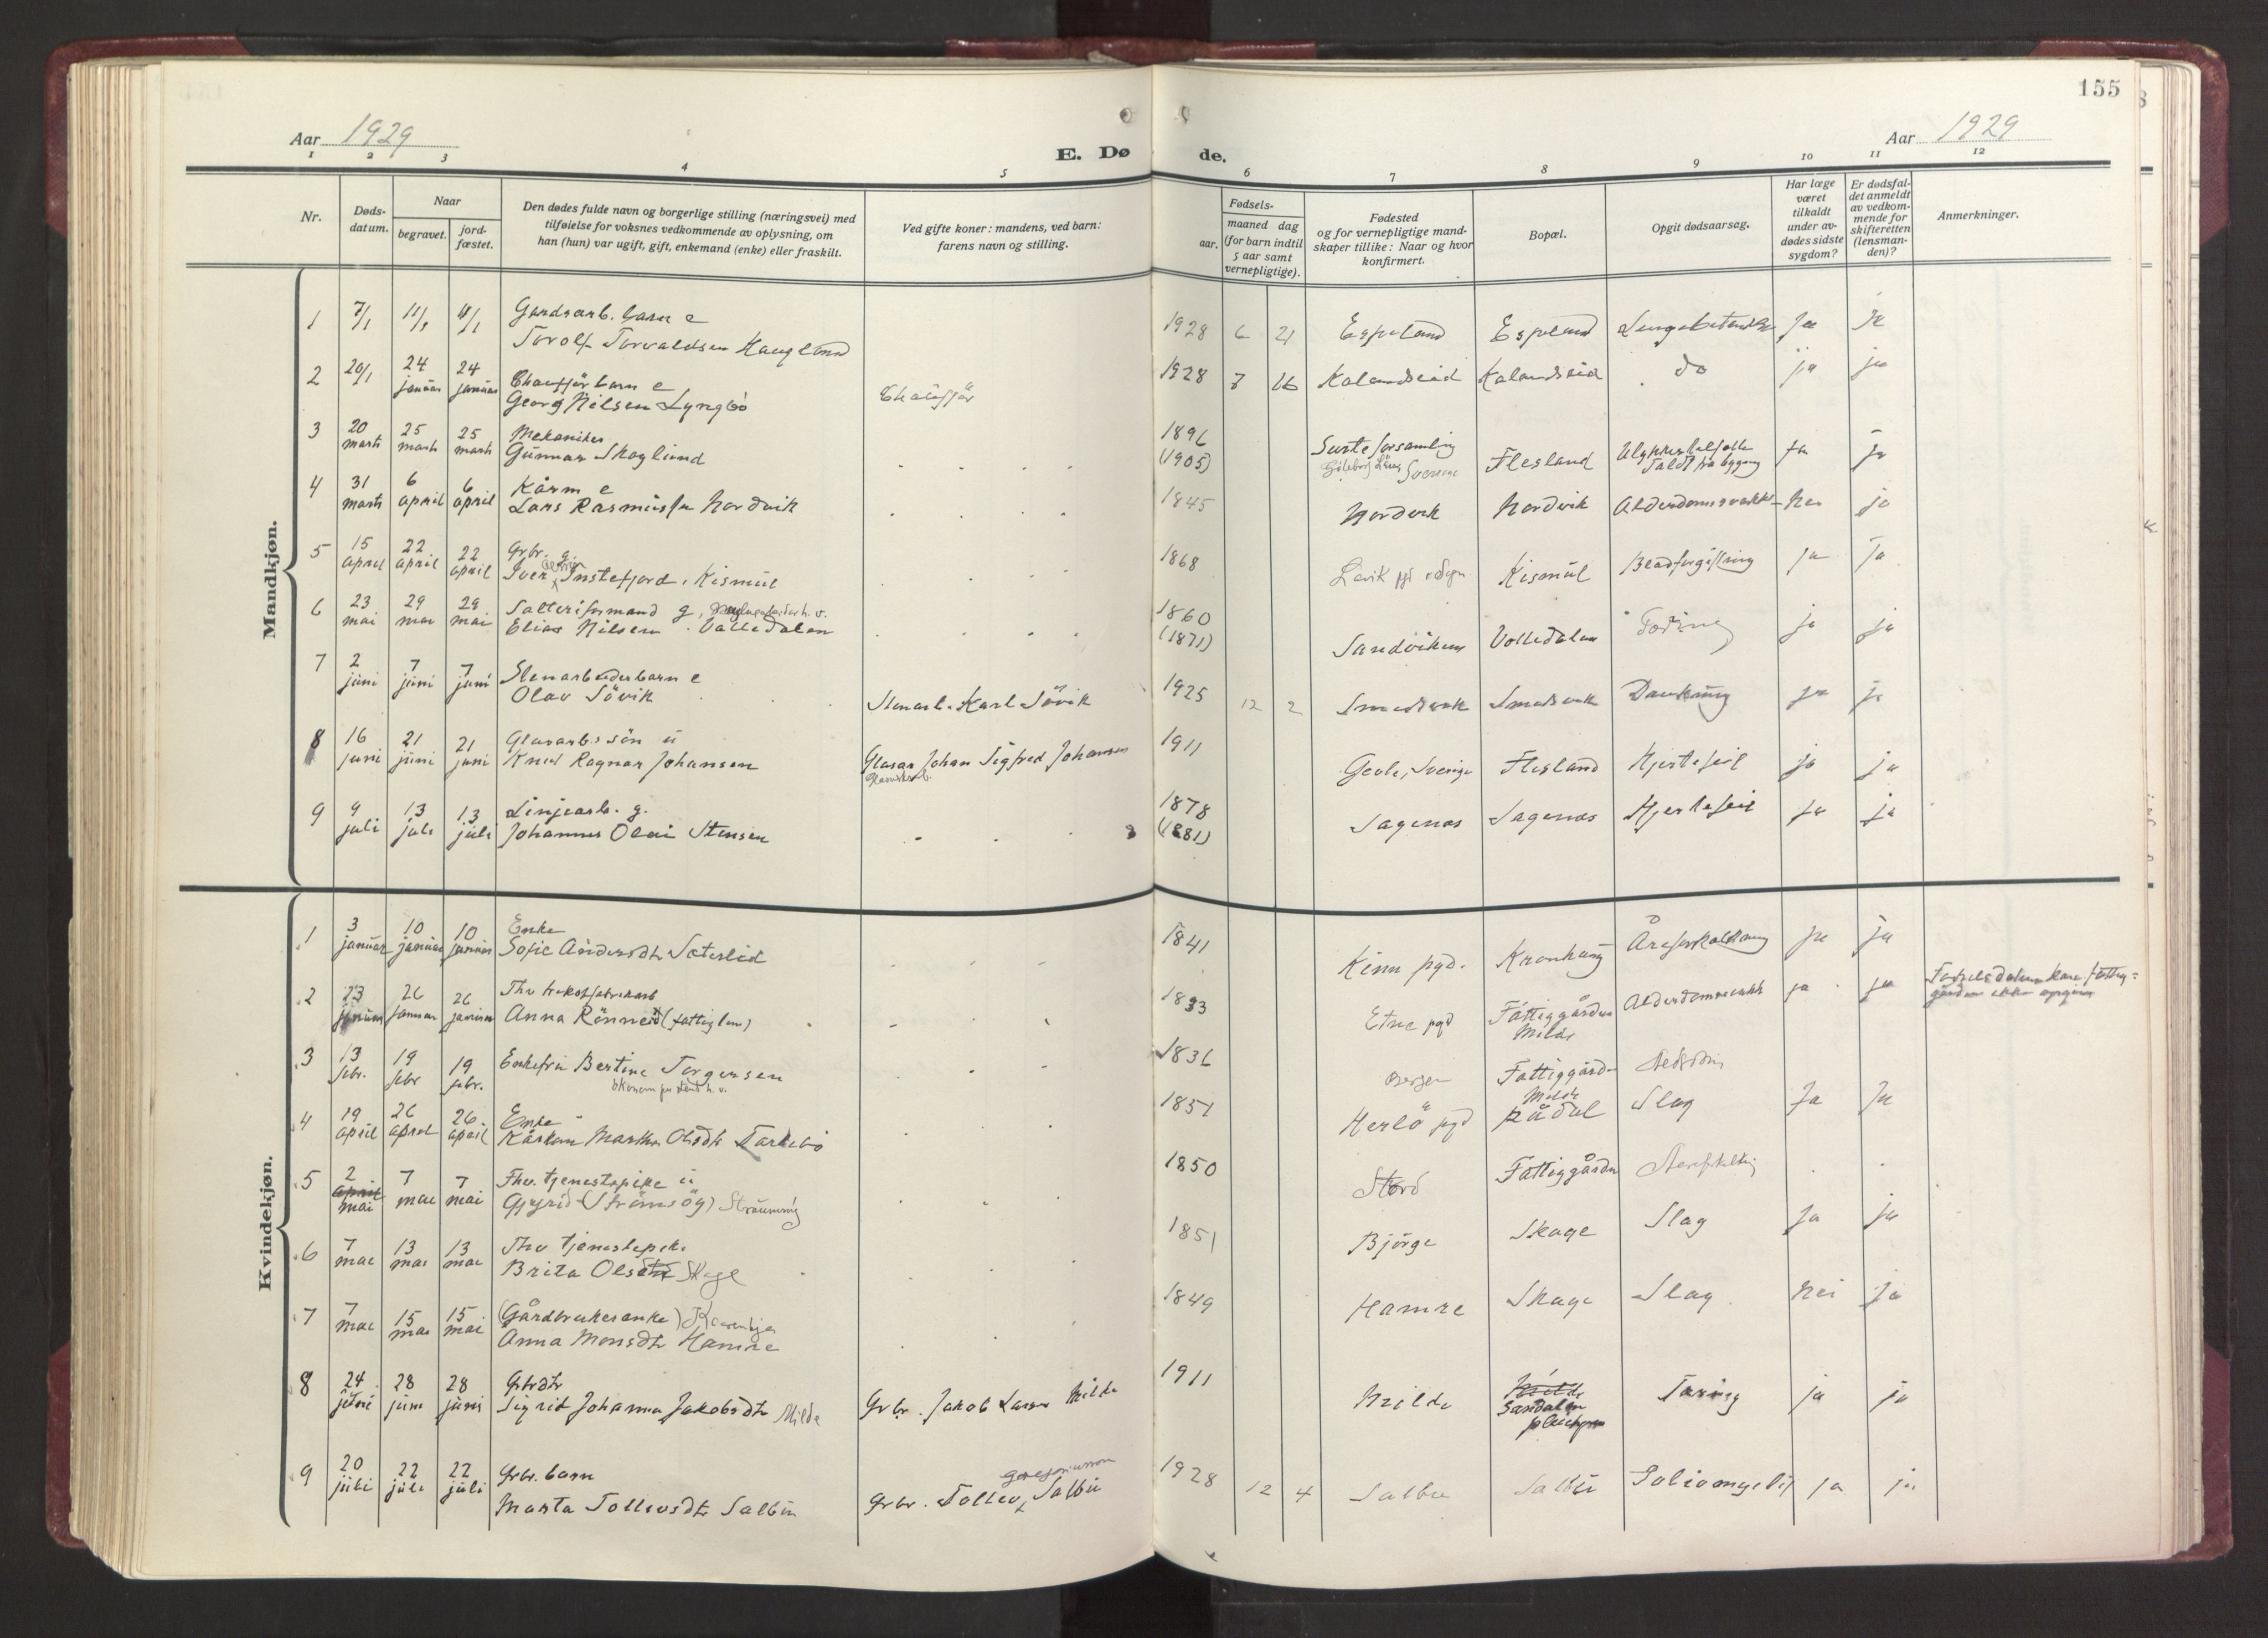 155
Aar 1929
E. Dø de.
Aar 1929
1 2 3 4 5 6 7 8 9 10 11 12
Nr.
Døds-
datum.
Naar
begravet.
jord-
fæstet.
Den dødes fulde navn og borgerlige stilling (næringsvei) med
tilføielse for voksnes vedkommende av oplysning, om
han (hun) var ugift, gift, enkemand (enke) eller fraskilt.
Ved gifte koner: mandens, ved barn:
farens navn og stilling.
Fødsels-
aar.
maaned dag
(for barn indtil
5 aar samt
vernepligtige).
Fødested
og for vernepligtige mand-
skaper tillike: Naar og hvor
konfirmert.
Bopæl.
Opgit dødsaarsag.
Har læge
været
tilkaldt
under av-
dødes sidste
sygdom?
Er dødsfal-
det anmeldt
av vedkom-
mende for
skifteretten
(lensman-
den)?
Anmerkninger.
Mandkjøn.
1 7/1 11/1 11/1 Gardsarb. barn e
Torolf Torvaldsen Haugland 1928 6 21 Espeland Espeland ja
2 20/1 24 januar 24 januar Chaufför barn e
Georg Nilsen Lyngbö Chaufför 1928 16 Kalandseid Kalandseid do ja ja
3 20 marts 25 marts 25 marts Mekaniker
Gunnar Skoglund 1896 (1905) Surte forsamling
Göteborg Läns Sverige Flesland ja ja
4 31 marts 6 april 6 april Kårm e
Lars Rasmussen Nordvik 1845 Nordvik Nordvik nei ja
5 15 april 22 april 22 april Grbr. g.
Iver Instefjord, Kismul 1868 Lavik Kismul Blodforgiftning ja ja
6 23 mai 29 mai 29 mai Salteriformand g.
Elias Nilsen Valledalen 1860 (1871) Sandviken Valledalen Tæring ja ja
7 2 juni 7 juni 7 juni Stenarbeiderbarn e
Olav Sövik Stenarb. Karl Sövik 1925 12 2 Smedsvik Smedsvik Drukning ja ja
8 16 juni 21 juni 21 juni Glasarb. sön u
Knut Ragnar Johansen Glasar Johan Sigfred Johansen 1911 Gevle, Sverige Flesland Hjertefeil ja ja
9 9 juli 13 juli 13 juli Linjearb. g.
Johannes Olai Stensen 1878 (1881) Sagenes Sagenes Hjertefeil ja ja
Kvindekjøn.
1 3 januar 10 januar 10 januar Enke
Sofie Andersdtr Sæterlid 1841 Kinn pgd. Kronhaug Åreforkalkning ja ja
2 23 januar 26 januar 26 januar Thv
Anna Rönneid (fattiglem) 1833 Etne pgd Fattiggården
Milde ja ja
3 13 febr. 19 febr 19 febr. Enkefru Bertine Torgersen 1836 Bergen Fattiggård
Milde
4 19 april 26 april 26 april Enke
Martha Olsdtr 1851 Herlö pgd Rådal Slag Ja Ja
5 2 april mai 7 mai 7 mai Thv. tjenestepike u
Gjyrid (Strömsöy) 1850 Stord Fattiggården
6 7 mai 13 mai 13 mai Thv tjenestepike
Brita Olsdtr Skage 1851 Björge Skage Slag Ja ja
7 7 mai 15 mai 15 mai (Gårdbrukerenke)
Anna Monsdtr Hamre 1849 Hamre Skage Slag nei ja
8 24 juni 28 juni 28 juni Grbrdtr
Sigrid Johanna Jakobsdtr Milde Grbr. Jakob Larsen Milde 1911 Milde Milde Tæring ja ja
9 20 juli 22 juli 22 juli Grbr. barn
Marta Tollevsdtr Salbu Grbr. Tollev Salbu 1928 12 4 Salbu Salbu Poliomyelit ja ja